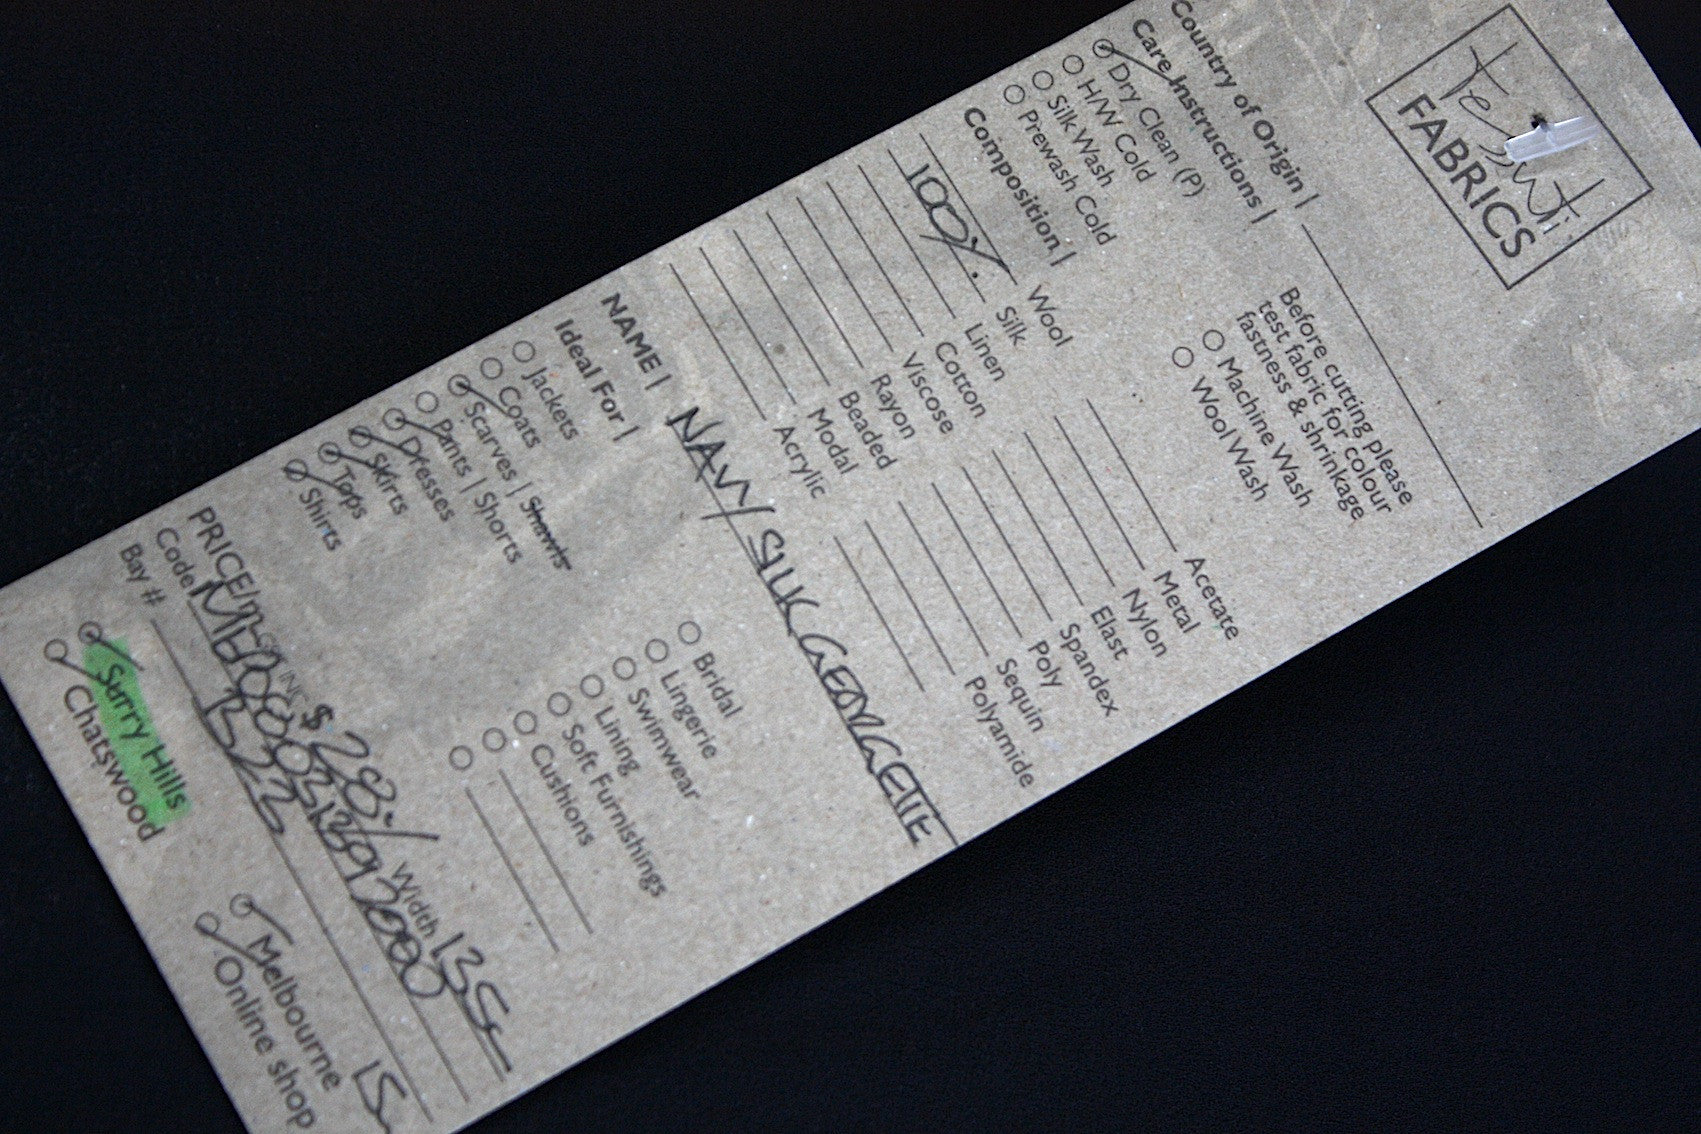 tessuti
FABRICS
Country of Origin |
Care Instructions |
Dry Clean (P)
H/W Cold
Silk Wash
Prewash Cold
Before cutting please
test fabric for colour
fastness & shrinkage
Machine Wash
Wool Wash
Composition |
Wool
100% Silk
Linen
Cotton
Viscose
Rayon
Beaded
Modal
Acrylic
Acetate
Metal
Nylon
Elast
Spandex
Poly
Sequin
Polyamide
NAME | NAVY SILK GEORGETTE
Ideal For |
Jackets
Coats
Scarves | Shawls
Pants | Shorts
Dresses
Skirts
Tops
Shirts
Bridal
Lingerie
Swimwear
Lining
Soft Furnishings
Cushions
PRICE/m GST INC $ 28 Width 135
Code
Bay #
Surry Hills
Chatswood
Melbourne
Online shop